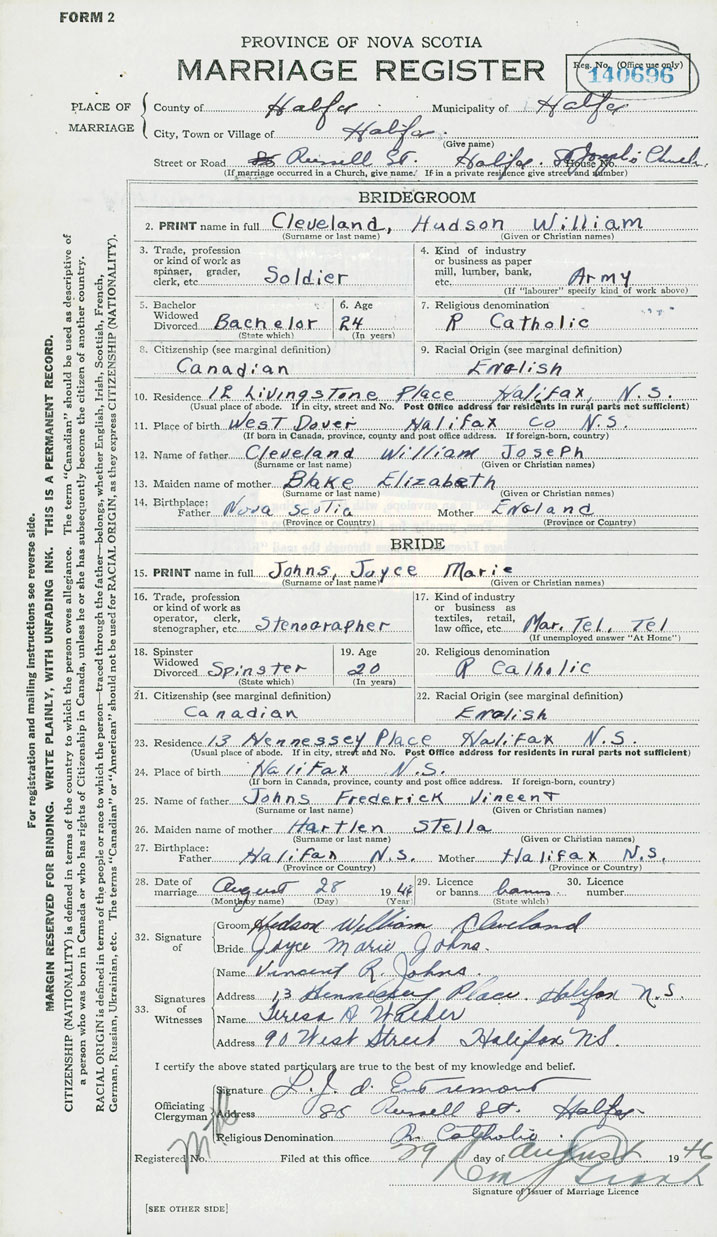 FORM 2
PROVINCE OF NOVA SCOTIA
MARRIAGE REGISTER
Reg. No. (Office use only)
140696
PLACE OF MARRIAGE
County of Halfx Municipality of Halfx
City, Town or Village of Halfx.
(Give name)
Street or Road Russell St. Halifax. St Joseph's Church.
House No.
(If marriage occurred in a Church, give name. If in a private residence give street and number)
BRIDEGROOM
2. PRINT name in full Cleveland, Hudson William
(Surname or last name) (Given or Christian names)
3. Trade, profession or kind of work as spinner, grader, clerk, etc. Soldier
4. Kind of industry or business as paper mill, lumber, bank, etc. Army
(If "labourer" specify kind of work above)
5. Bachelor Widowed Divorced Bachelor
(State which)
6. Age 24
(In years)
7. Religious denomination
R Catholic
8. Citizenship (see marginal definition)
Canadian
9. Racial Origin (see marginal definition)
English
10. Residence 12 Livingstone Place Halifax, N.S.
(Usual place of abode. If in city, street and No. Post Office address for residents in rural parts not sufficient)
11. Place of birth West Dover Halifax Co N.S.
(If born in Canada, province, county and post office address. If foreign-born, country)
12. Name of father Cleveland William Joseph
(Surname or last name) (Given or Christian names)
13. Maiden name of mother Blake Elizabeth
(Surname or last name) (Given or Christian names)
14. Birthplace: Father Nova Scotia Mother England
(Province or Country) (Province or Country)
BRIDE
15. PRINT name in full Johns, Joyce Marie
(Surname or last name) (Given or Christian names)
16. Trade, profession or kind of work as operator, clerk, stenographer, etc. Stenographer
17. Kind of industry or business as textiles, retail, law office, etc. Mar. Tel, Tel
(If unemployed answer "At Home")
18. Spinster Widowed Divorced Spinster
(State which)
19. Age 20
(In years)
20. Religious denomination
R Catholic
21. Citizenship (see marginal definition)
Canadian
22. Racial Origin (see marginal definition)
English
23. Residence 13 Hennessey Place Halifax N.S.
(Usual place of abode. If in city, street and No. Post Office address for residents in rural parts not sufficient)
24. Place of birth Halifax N.S.
(If born in Canada, province, county and post office address. If foreign-born, country)
25. Name of father Johns Frederick Vincent
(Surname or last name) (Given or Christian names)
26. Maiden name of mother Hartlen Stella
(Surname or last name) (Given or Christian names)
27. Birthplace: Father Halifax N.S. Mother Halifax N.S.
(Province or Country) (Province or Country)
28. Date of marriage August 28 1946
(Month by name) (Day) (Year)
29. Licence or banns banns
(State which)
30. Licence number
32. Signature of
Groom Hudson William Cleveland
Bride Joyce Marie Johns.
33. Signatures of Witnesses
Name Vincent R. Johns.
Address 13 Hennessey Place. Halifax N.S.
Name Teresa A Walker
Address 90 West Street Halifax NS.
I certify the above stated particulars are true to the best of my knowledge and belief.
Officiating Clergyman
Signature L. J. d'Entremont
Address 86 Russell St. Halfx.
Religious Denomination R. Catholic
Registered No. Filed at this office 29 day of August 1946
Signature of Issuer of Marriage Licence
[SEE OTHER SIDE]
For registration and mailing instructions see reverse side.
MARGIN RESERVED FOR BINDING. WRITE PLAINLY, WITH UNFADING INK. THIS IS A PERMANENT RECORD.
CITIZENSHIP (NATIONALITY) is defined in terms of the country to which the person owes allegiance. The term "Canadian" should be used as descriptive of
a person who was born in Canada or who has rights of Citizenship in Canada, unless he or she has subsequently become the citizen of another country.
RACIAL ORIGIN is defined in terms of the people or race to which the person—traced through the father—belongs, whether English, Irish, Scottish, French,
German, Russian, Ukrainian, etc. The terms "Canadian" or "American" should not be used for RACIAL ORIGIN, as they express CITIZENSHIP (NATIONALITY).